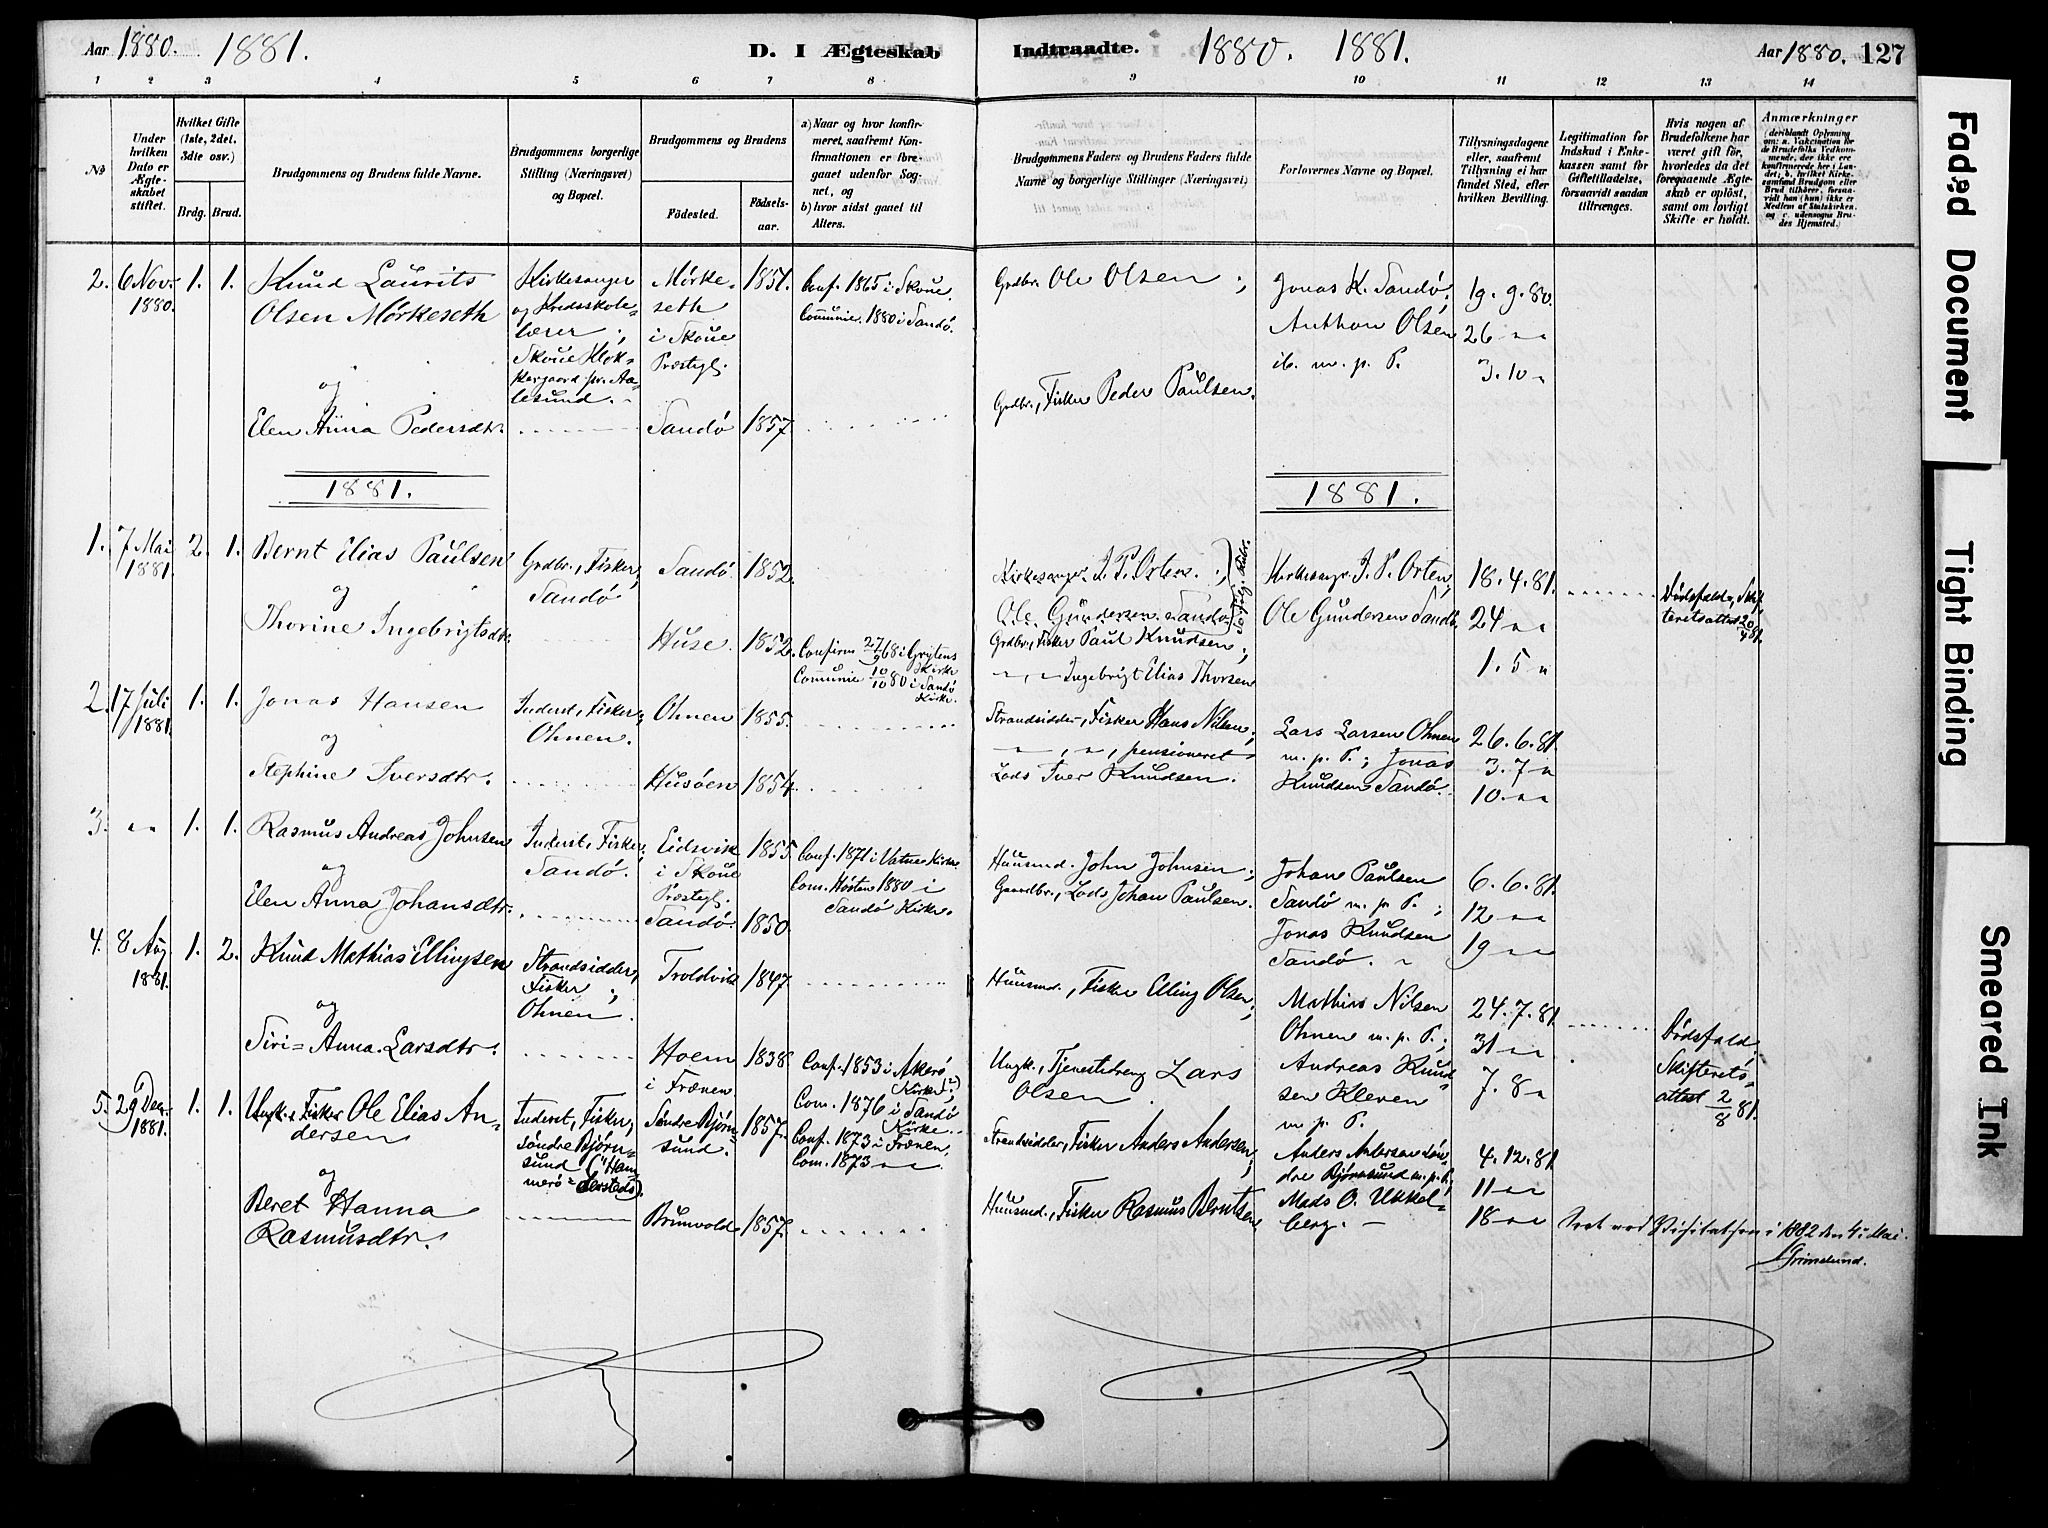 Aar 1880. 1881. D. I Ægteskab Indtraadte. 1880. 1881. Aar 1880. 127
1 2 3 4 5 6 7 8 9 10 11 12 13 14
No
Under hvilken Dato er Ægteskabet stiftet.
Hvilket Gifte (1ste, 2det, 3die osv.)
Brdg. Brud.
Brudgommens og Brudens fulde Navne.
Brudgommens borgerlige Stilling (Næringsvei) og Bopæl.
Brudgommens og Brudens
Födested. Födselsaar.
a) Naar og hvor konfirmeret, saafremt Konfirmationen er foregaaet udenfor Sognet, og
b) hvor sidst gaaet til Alters.
Brudgommens Faders og Brudens Faders fulde Navne og borgerlige Stillinger (Næringsvei)
Forlovernes Navne og Bopæl.
Tillysningsdagene eller, saafremt Tillysning ei har fundet Sted, efter hvilken Bevilling.
Legitimation for Indskud i Enkekassen samt for Giftetilladelse, forsaavidt saadan tiltrænges.
Hvis nogen af Brudefolkene har været gift för, hvorledes da det foregaaende Ægteskab er oplöst, samt om lovligt Skifte er holdt.
Anmærkninger
(deriblandt Oplysning om: a. Vakcination for de Brudefolks Vedkommende, der ikke ere konfirmerede her i Landet; b. hvilket Kirkesamfund Brudgom eller Brud tilhörer, forsaavidt han (hun) ikke er Medlem af Statskirken, og c. udensogns Brudes Hjemsted.)
2. 6 Nov. 1880. 1. 1. Knud Laurits
Olsen Mörkeseth
og
Elen Anna Pedersdtr.
Kirkesanger
og Kredsskolelærer;
Skoue Klokkergaard pr. Aalesund.
Mörkeseth
i Skoue
Præstegl.
1851.
Conf. 1865 i Skoue.
Communic. 1880 i Sandö.
Sandö 1857.
Grdbr. Ole Olsen;
Grdbr., Fisker Peder Paulsen.
Jonas K. Sandö,
Anthon Olsen
ib. m. p. P.
19. 9. 80.
26 " "
3. 10 "
1881. 1881.
1. 7 Mai 1881. 2. 1. Bernt Elias Paulsen
og
Thorine Ingebrigtsdtr.
Grdbr., Fisker;
Sandö
Sandö. 1852.
Huse. 1852.
Confirm 27/9 68 i Grytens Kirke
Communic 10/10 80 i Sandö Kirke.
Kirkesanger I. P. Orten.
Ole Gundersen Sandö
Grdbr., Fisker Paul Knudsen;
" , " Ingebrigt Elias Thorsen
Kirkesangr. I. P. Orten,
Ole Gundersen Sandö.
18. 4. 81.
24 " "
1. 5 "
Dödsfald, Skifteretsattest 20/4 81.
2. 17 Juli 1881. 1. 1. Jonas Hansen
og
Stephine Iversdtr.
Inderst, Fisker;
Ohnen.
Ohnen 1855.
Husöen 1854.
Strandsidder, Fisker Hans Nilsen;
" , " , pensioneret
Lods Iver Knudsen.
Lars Larsen Ohnen
m. p. P.; Jonas
Knudsen Sandö.
26. 6. 81.
3. 7 "
10. " "
3. " " 1. 1. Rasmus Andreas Johnsen
og
Elen Anna Johansdtr.
Inderst, Fisker;
Sandö.
Eidsvik
i Skoue
Præstegl.
1855.
Sandö. 1850.
Conf. 1871 i Vatne Kirke
Com. Hösten 1880 i
Sandö Kirke.
Huusmd. John Johnsen;
Gaardbr., Lods Johan Paulsen.
Johan Paulsen
Sandö m. p. P.;
Jonas Knudsen
Sandö. "
6. 6. 81.
12 " "
19 " "
4. 8 Aug. 1881. 1. 2. Knud Mathias Ellingsen
og
Siri = Anna Larsdtr.
Strandsidder,
Fisker;
Ohnen.
Troldvik 1847.
Hoem
i Frænen.
1838.
Conf. 1853 i Akerö
Kirke (?)
Com. 1876 i Sandö
Kirke.
Huusmd., Fisker Elling Olsen;
Ungk., Tjenestedreng Lars
Olsen.
Mathias Nilsen
Ohnen m. p. P.;
Andreas Knudsen Kleven
m. p. P.
24. 7. 81.
31 " "
7. 8 "
Dödsfald;
Skifteretsattest 2/8 81.
5. 29 Dec. 1881. 1. 1. Ungk. & Fisker Ole Elias Andersen
og
Beret Hanna
Rasmusdtr.
Inderst, Fisker;
söndre Björnsund ("Hammerö =
Söndre Björnsund.
1857.
Brunvold 1857.
Conf. 1873 i Frænen.
Com. 1873 " "
Strandsidder, Fisker Anders Andersen;
Huusmd., Fisker Rasmus Berntsen
Anders Andersen söndre Björnsund m. p. P.;
Mads O. Ukkelberg. "
4. 12. 81.
11 " "
18 " "
Seet ved Visitatsen i 1882 den 4. Mai.
Grimelund.
Faded Document
Tight Binding
Smeared Ink